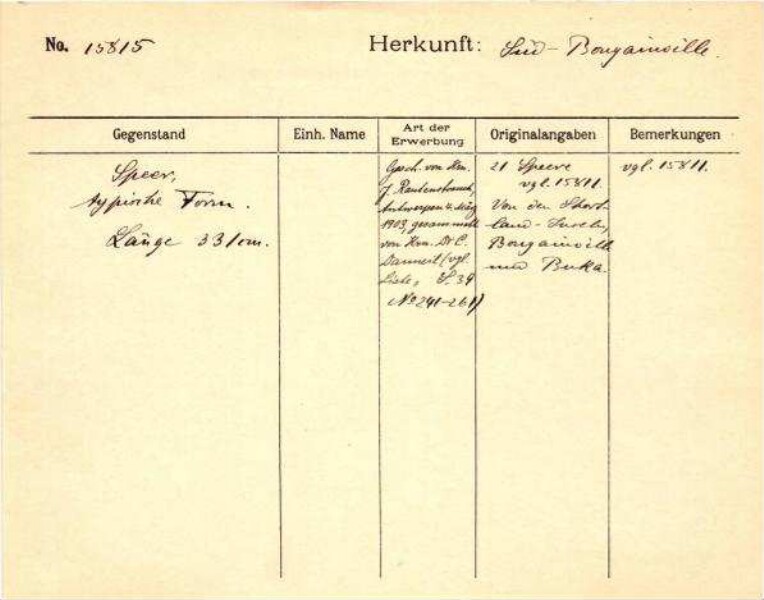 No. 15815
Herkunft: Süd-Bougainville.
Gegenstand
Einh. Name
Art der Erwerbung
Originalangaben
Bemerkungen
Speer,
typische Form.
Länge 331 cm.
Gesch. von Hrn.
J. Rautenstrauch,
Antwerpen 4. März
1903, gesammelt
von Hrn. Dr C.
Dannert (vgl.
Liste, S. 39
No 241-261)
21 Speere
vgl. 15811.
Von den Short-
land-Inseln,
Bougainville
und Buka.
vgl. 15811.